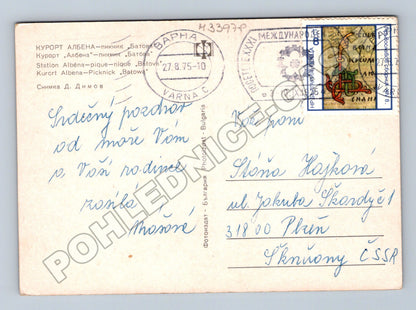 43397P
КУРОРТ АЛБЕНА—пикник „Батова"
Курорт „Албена"—пикник „Батова"
Station Albéna—pique-nique „Batowa"
Kurort Albena—Picknick „Batowa"
Снимка Д. Димов
ВАРНА
27.8.75-10
VARNA C
МЕЖДУНАРОД
Srdečný pozdrav
od moře Vám
a Vaší rodince
zasílá
Фотоиздат - България Photoizdat - Bulgaria
Vážená paní
Stáňa Hajková
ul. Jakuba Škardy č 1
318 00 Plzeň
Skvrňany ČSSR
POHLEDNICE.C